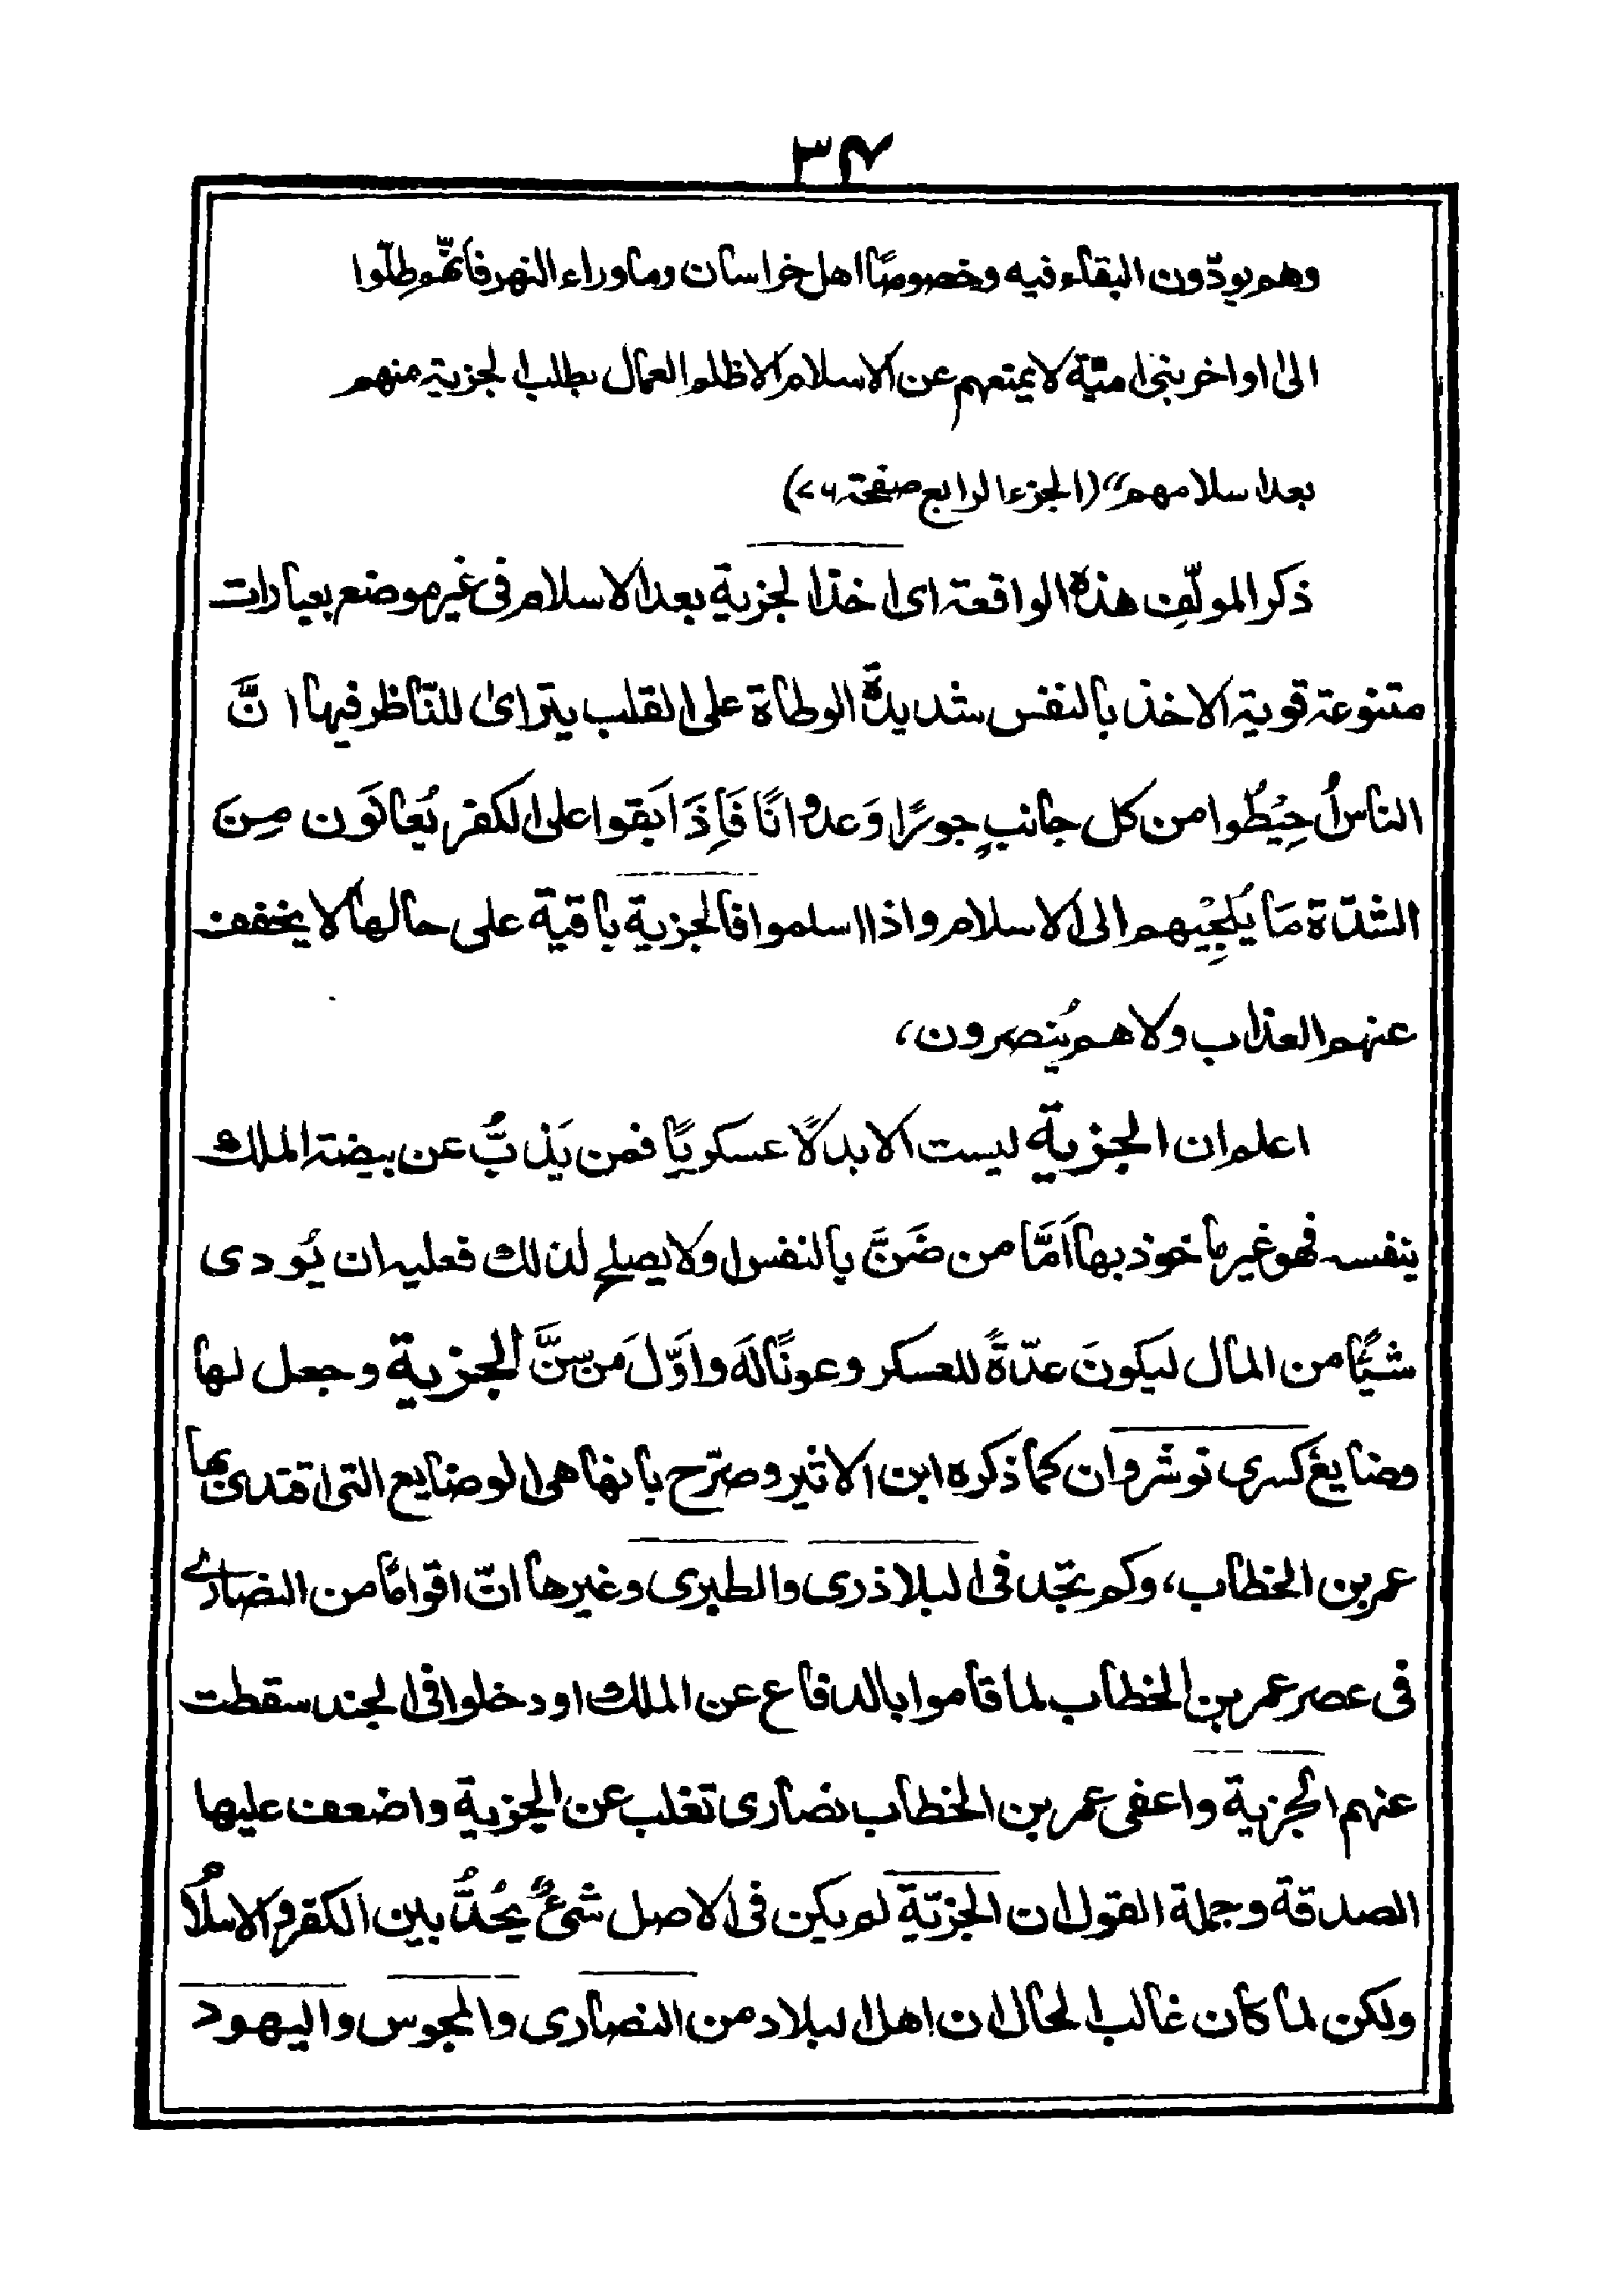 ٣٤
وهم يودّون البقاء فيه وخصوصًا اهل خراسان وما وراء النهر فانّهم ظلّوا
الىٰ اواخر بنى امیّة لا يمنعهم عن الاسلام الا ظلم العمال بطلب الجزية منهم
بعد اسلامهم" (الجزء الرابع صفحة ٧٦)
ذكر المولّف هذه الواقعة اى اخذ الجزية بعد الاسلام فى غير موضع بعبارات
متنوعة قوية الاخذ بالنفس شديدة الوطاة على القلب يتراىٰ للنّاظر فيها انَّ
الناس اُحِيُطُوا من كل جانبٍ جورًا وَعدوانًا فَاِذَا بَقوا على الكفر يُعانَون مِنَ
الشدّة مَا يُلجِئيهم الى الاسلام واذا اسلموا فالجزية باقية على حالها لا يخفف
عنهم العذاب ولا هم يُنصرون،
اعلم ان الجزية ليست الا بدلًا عسكريًا فمن يَذبُّ عن بيضة الملك
بنفسه فهو غير ماخوذ بها اَمَّا من ضَنَّ بالنفس او لا يصلح لذلك فعليه ان يُودى
شئًا من المال ليكونَ عدّةً للعسكر وعونًا لَه واوّلَ مَن سنَّ الجزية وجعل لها
وضايعَ كسرى نوشروان كما ذكره ابن الاثير وصرّح بانها هى الوضايع التى اقتدىٰ بها
عمر بن الخطاب، وكم تجد فى البلاذرى والطبرى وغيرها انّ اقوامًا من النصارىٰ
فى عصر عمر بن الخطاب لما قاموا بالدفاع عن الملك او دخلوا فى الجند سقطت
عنهم الجزية واعفى عمر بن الخطاب نصارى تغلب عن الجزية واضعف عليها
الصدقة وجملة القول ان الجزيّة لم يكن فى الاصل شئٌ يُحُدُّ بين الكفر والاسلام
ولكن لما كان غالب الحال ان اهل البلاد من النصارى والمجوس واليهود